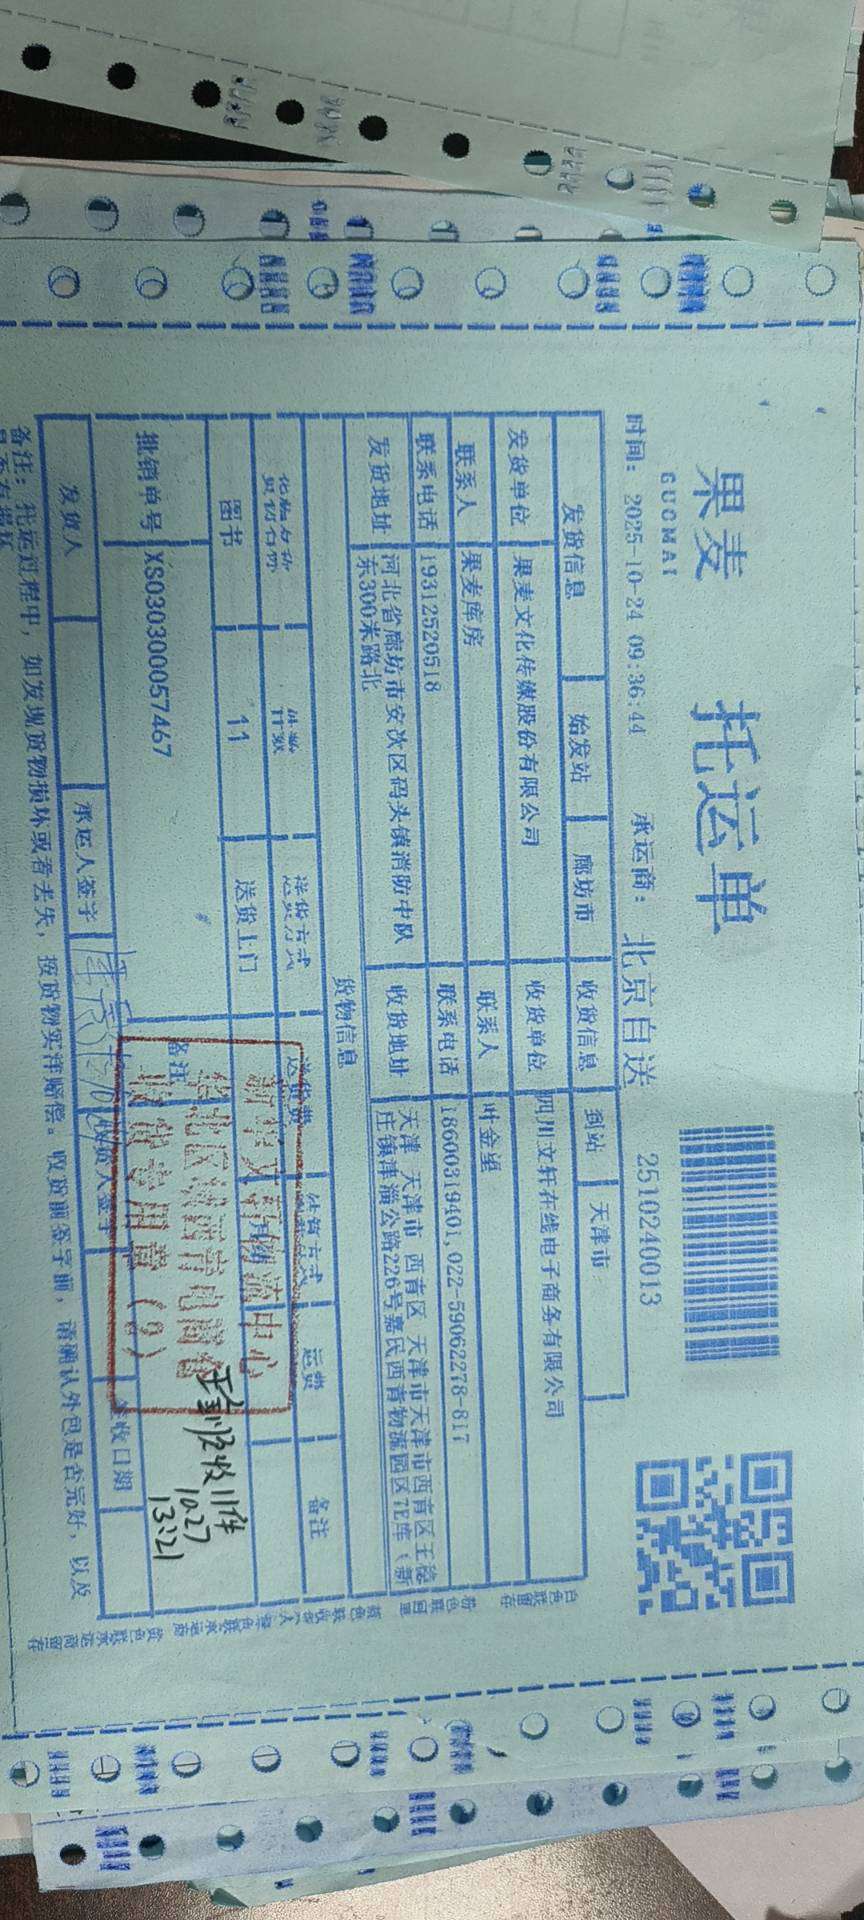 果麦 托运单
GUOMAI
时间：2025-10-24 09:36:44 承运商：北京自送 2510240013
发货信息 始发站 廊坊市 收货信息 到站 天津市
发货单位 果麦文化传媒股份有限公司 收货单位 四川文轩在线电子商务有限公司
联系人 果麦库房 联系人
联系电话 19312520518 联系电话 18600319401,022-59062278-817
发货地址 河北省廊坊市安次区码头镇消防中队东300米路北 收货地址 天津 天津市 西青区 天津市天津市西青区王稳庄镇津淄公路226号嘉民西青物流园区7E库（新
货物信息
货物名称 件数 送货方式 送货费 结算方式 运费 备注
图书 11 送货上门
批销单号 XS030300057467 备注
发货人 承运人签字 收货人签字 签收日期
备注：托运过程中，如发现货物损坏或者丢失，按货物实洋赔偿。收货前签字前，请确认外包是否完好，以及
是否有损坏
白色联留存
粉色联回单
物流中心
收货专用章
收11件
10.27
13:21